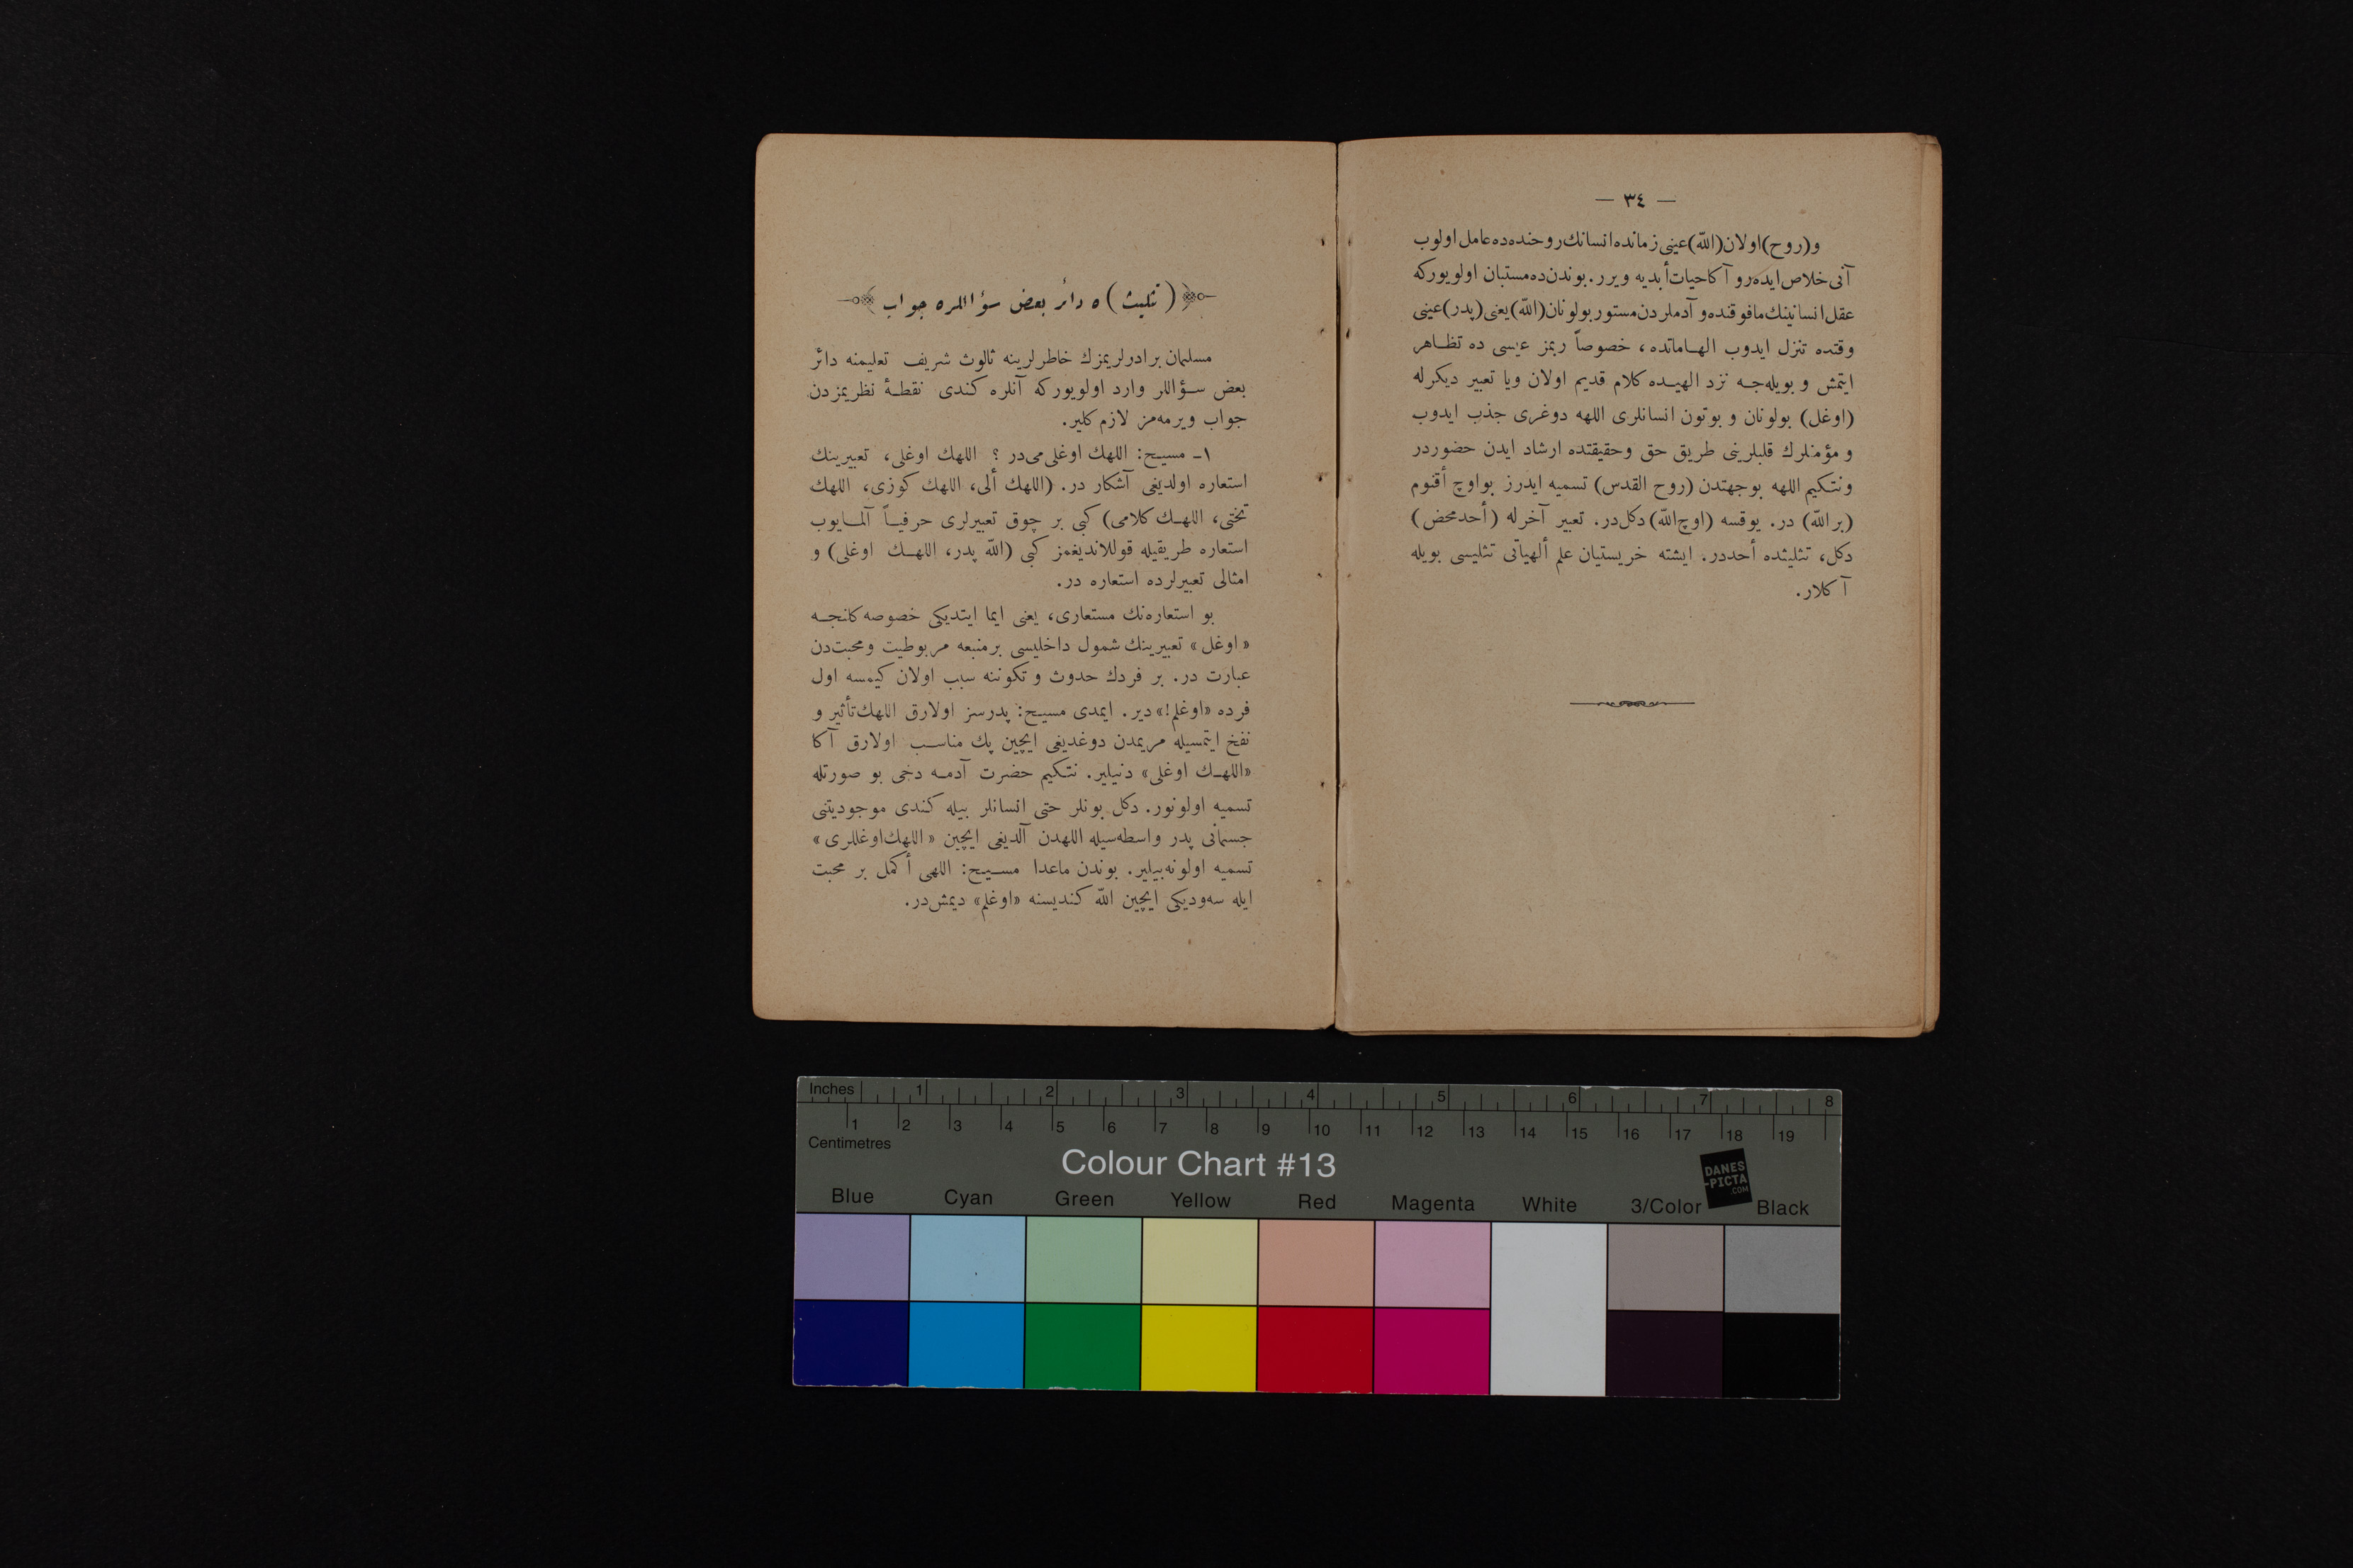 — ٣٤ —
و (روح) اولان (الله) عينى زمانده انسانك روحنده ده عامل اولوب
آنى خلاص ايده رو آكا حيات أبديه ويرر. بوندن ده مستبان اولويوركه
عقل انسانينك مافوقنده و آدملردن مستور بولونان (الله) يعنى (پدر) عينى
وقتده تنزل ايدوب الهاماتده، خصوصاً ربمز عيسى ده تظاهر
ايتمش و بويله جه نزد الهيده كلام قديم اولان ويا تعبير ديكرله
(اوغل) بولونان و بوتون انسانلرى اللهه دوغرى جذب ايدوب
و مؤمنلرك قلبلرينى طريق حق وحقيقتده ارشاد ايدن حضوردر
ونتكيم اللهه بوجهتدن (روح القدس) تسميه ايدرز بواوچ أقنوم
(بر الله) در. يوقسه (اوچ الله) دكل در. تعبير آخرله (أحد محض)
دكل، تثليثده أحددر. ايشته خريستيان علم ألهياتى تثليسى بويله
آكلار.
(تثليث) ه دائر بعض سؤاللره جواب
مسلمان برادرلريمزك خاطرلرينه ثالوث شريف تعليمنه دائر
بعض سؤاللر وارد اولويوركه آنلره كندى نقطهٔ نظريمزدن
جواب ويرمه مز لازم كلير.
١ـ مسيح: اللهك اوغلى مى در ؟ اللهك اوغلى، تعبيرينك
استعاره اولديغى آشكار در. (اللهك ألى، اللهك كوزى، اللهك
تختى، اللهك كلامى) كبى بر چوق تعبيرلرى حرفياً آلمايوب
استعاره طريقيله قوللانديغمز كبى (الله پدر، اللهك اوغلى) و
امثالى تعبيرلرده استعاره در.
بو استعاره نك مستعارى، يعنى ايما ايتديكى خصوصه كلنجه
«اوغل» تعبيرينك شمول داخليسى برمنبعه مربوطيت ومحبت دن
عبارت در. بر فردك حدوث و تكوننه سبب اولان كيمسه اول
فرده «اوغلم!» دير. ايمدى مسيح: پدرسز اولارق اللهك تأثير و
نفخ ايتمسيله مريمدن دوغديغى ايچين پك مناسب اولارق آكا
«اللهك اوغلى» دنيلير. نتكيم حضرت آدمه دخى بو صورتله
تسميه اولونور. دكل بونلر حتى انسانلر بيله كندى موجوديتنى
جسمانى پدر واسطه سيله اللهدن آلديغى ايچين «اللهك اوغللرى»
تسميه اولونه بيلير. بوندن ماعدا مسيح: اللهى أكمل بر محبت
ايله سه وديكى ايچين الله كنديسنه «اوغلم» ديمش در.
Inches 1 2 3 4 5 6 7 8
1 2 3 4 5 6 7 8 9 10 11 12 13 14 15 16 17 18 19
Centimetres
Colour Chart #13
DANES
-PICTA
.COM
Blue Cyan Green Yellow Red Magenta White 3/Color Black